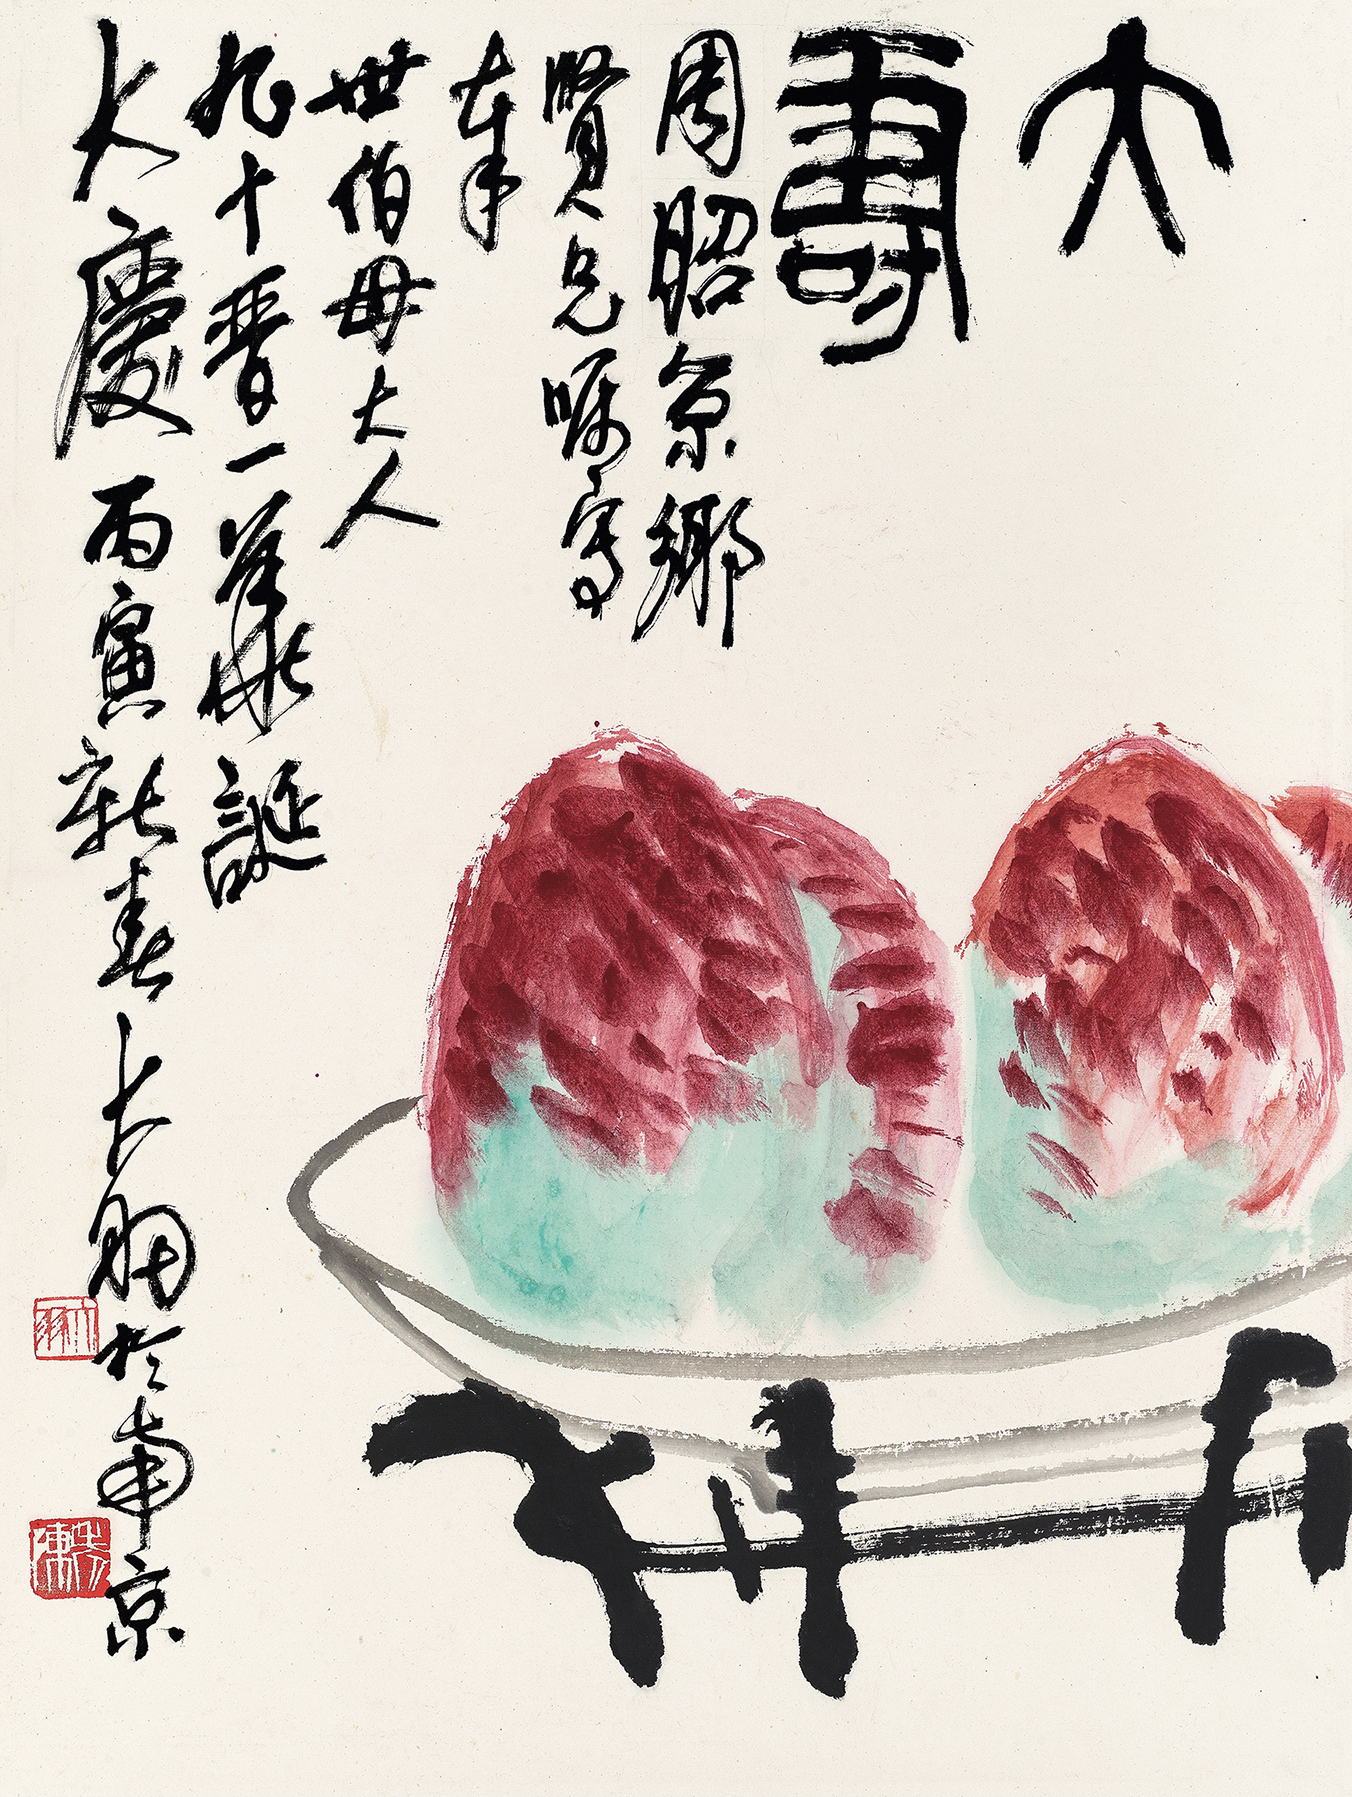 大壽
周昭京鄉
賢兄囑寫
奉
世伯母大人
九十晋一華誕
大慶 丙寅新春大羽於南京
大羽